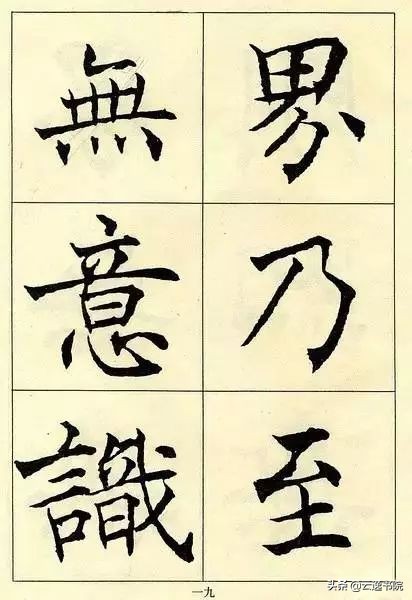 界乃至
無意識
一九
头条@云逛书院